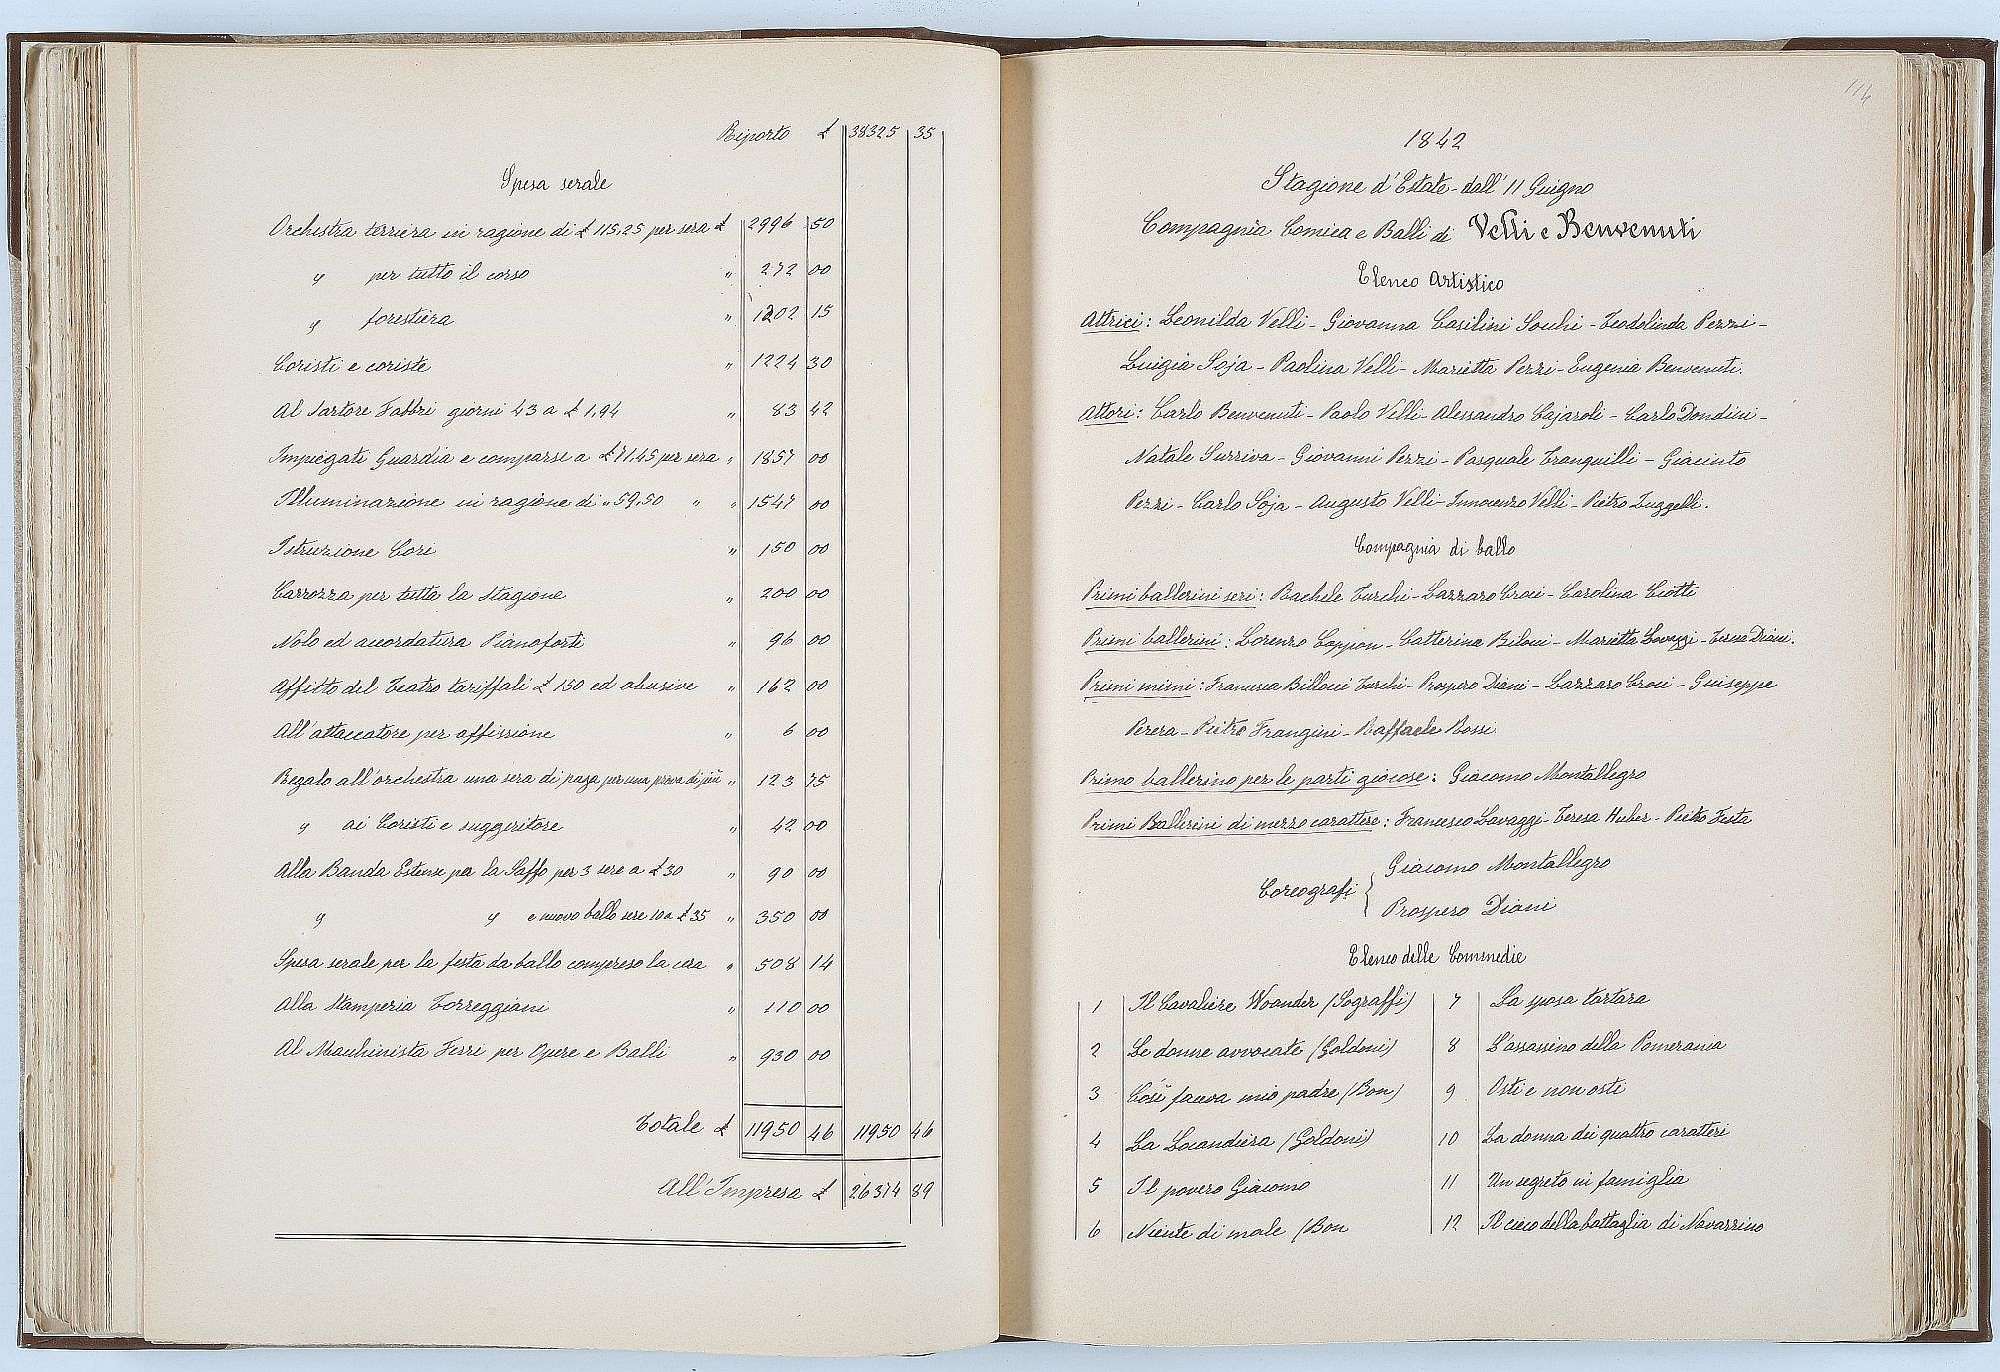 Riporto £ 38325 35
Spesa serale
Orchestra terriera in ragione di £ 115,25 per sera £ 2996 50
" per tutto il corso " 272 00
" forestiera " 1202 15
Coristi e coriste " 1224 30
Al Sartore Fabbri giorni 43 a £ 1,94 " 83 42
Impiegati Guardia e comparse a £ 71,45 per sera " 1857 00
Illuminazione in ragione di " 59,50 " " 1547 00
Istruzione Cori " 150 00
Carrozza per tutta la stagione " 200 00
Nolo ed accordatura Pianoforti " 96 00
Affitto del Teatro tariffali £ 150 ed abusive " 162 00
All'attaccatore per affissione " 6 00
Regalo all'orchestra una sera di paga per una prova di più " 123 75
" ai Coristi e suggeritore " 42 00
Alla Banda Estense per la Saffo per 3 sere a £ 30 " 90 00
" " e nuovo ballo sere 10 a £ 35 " 350 00
Spesa serale per la festa da ballo compreso la cera " 508 14
Alla Stamperia Torreggiani " 110 00
Al Macchinista Ferri per Opere e Balli " 930 00
Totale £ 11950 46 11950 46
All'Impresa £ 26374 89
114
1842
Stagione d'Estate - dall'11 Guigno
Compagnia Comica e Balli di Velli e Benvenuti
Elenco Artistico
Attrici: Leonilda Velli - Giovanna Casilini Socchi - Teodolinda Pezzi -
Luigia Soja - Paolina Velli - Marietta Pezzi - Eugenia Benvenuti.
Attori: Carlo Benvenuti - Paolo Velli - Alessandro Cajaroli - Carlo Dondini -
Natale Surriva - Giovanni Pezzi - Pasquale Tranquilli - Giacinto
Pezzi - Carlo Soja - Augusto Velli - Innocenzo Velli - Pietro Zuggelli.
Compagnia di ballo
Primi ballerini seri: Rachele Turchi - Lazzaro Croci - Carolina Ciotti
Primi ballerini: Lorenzo Coppon - Catterina Biloui - Marietta Lavaggi - Teresa Diani.
Primi mimi: Francesca Billocci Turchi - Prospero Diani - Lazzaro Croci - Guiseppe
Perera - Pietro Frangini - Raffaele Rossi
Primo ballerino per le parti giocose: Giacomo Montallegro
Primi Ballerini di mezzo carattere: Francesco Lavaggi - Teresa Huber - Pietro Festa
Coreografi { Giacomo Montallegro
Prospero Diani
Elenco delle Commedie
1 Il Cavaliere Woander (Sograffi)
2 Le donne avvocate (Goldoni)
3 Così faceva mio padre (Bon)
4 La Locandiera (Goldoni)
5 Il povero Giacomo
6 Niente di male (Bon
7 La sposa tartara
8 L'assassino della Pomerania
9 Osti e non osti
10 La donna dei quattro caratteri
11 Un segreto in famiglia
12 Il cieco della battaglia di Navarrino